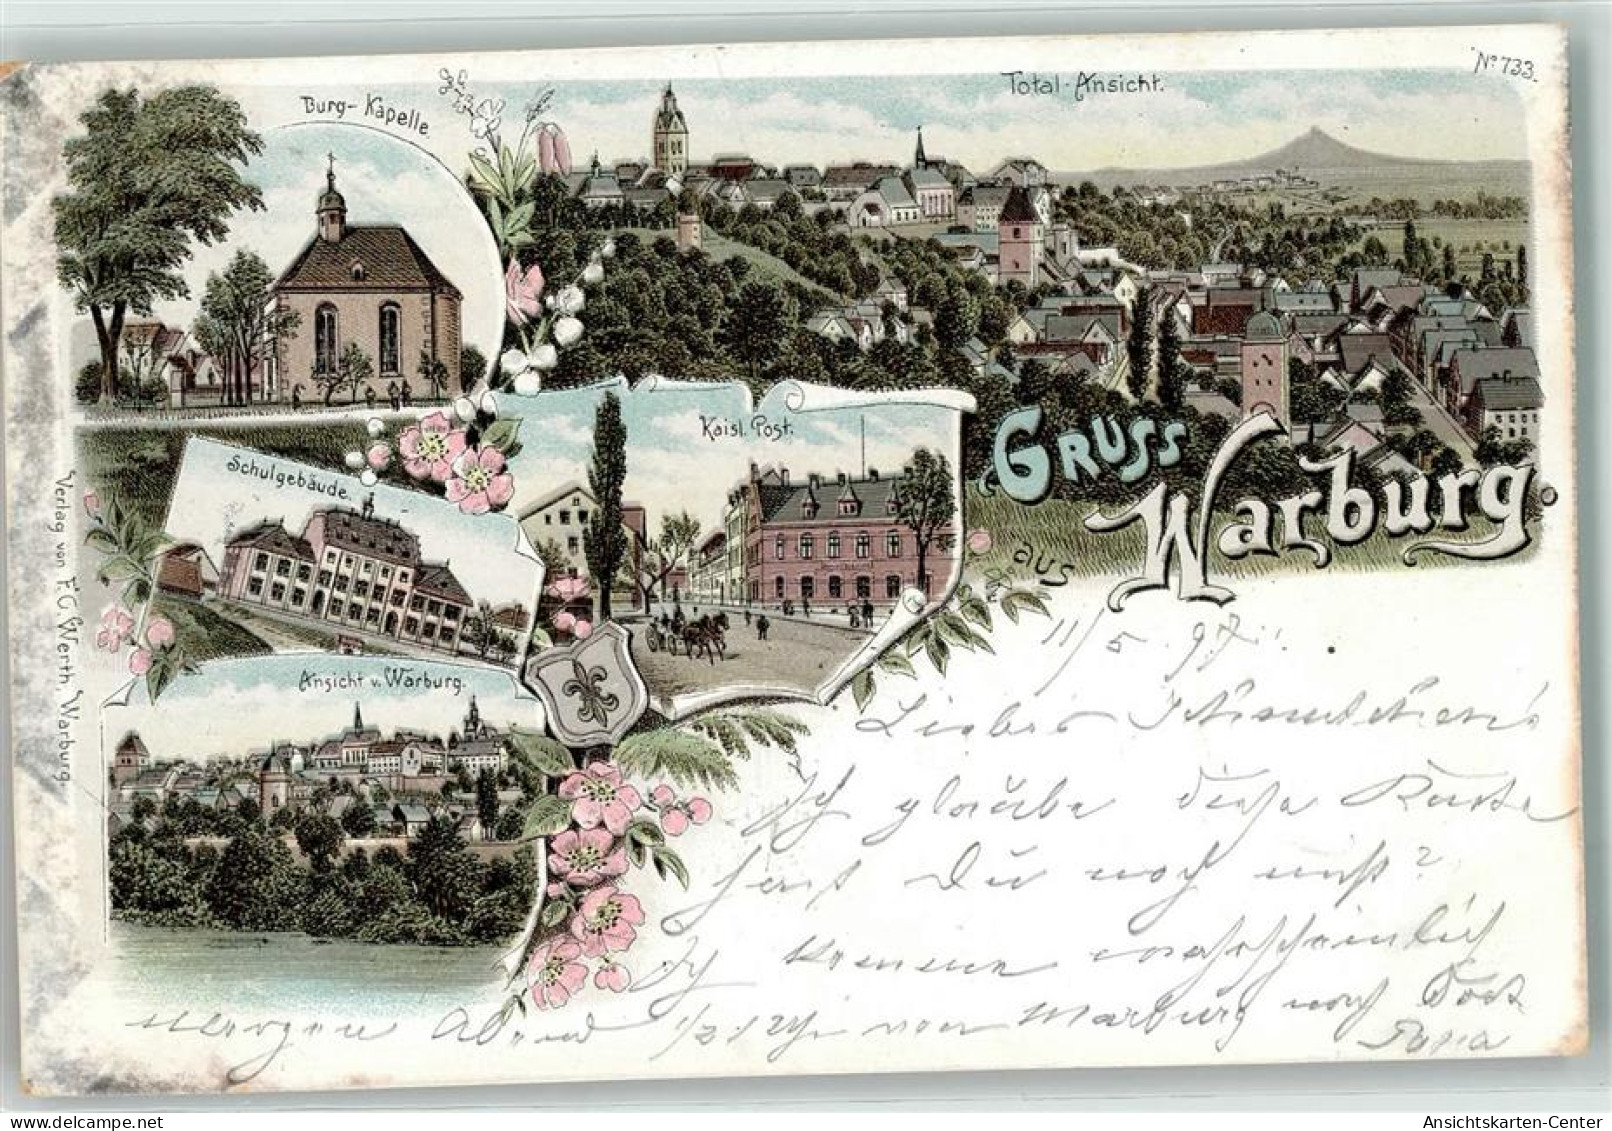 Nº 733.
Total-Ansicht.
Burg-Kapelle
Kaisl. Post.
Schulgebäude.
Ansicht v. Warburg.
Gruss
aus
Warburg.
Verlag von F. C. Werth, Warburg.
11/5 97.
Liebes
Ich glaube diese Karte
hast Du noch nicht?
Ich komme wahrscheinlich
morgen Abend 1/2 Uhr von Marburg nach dort
Papa
Ansichtskarten-Center